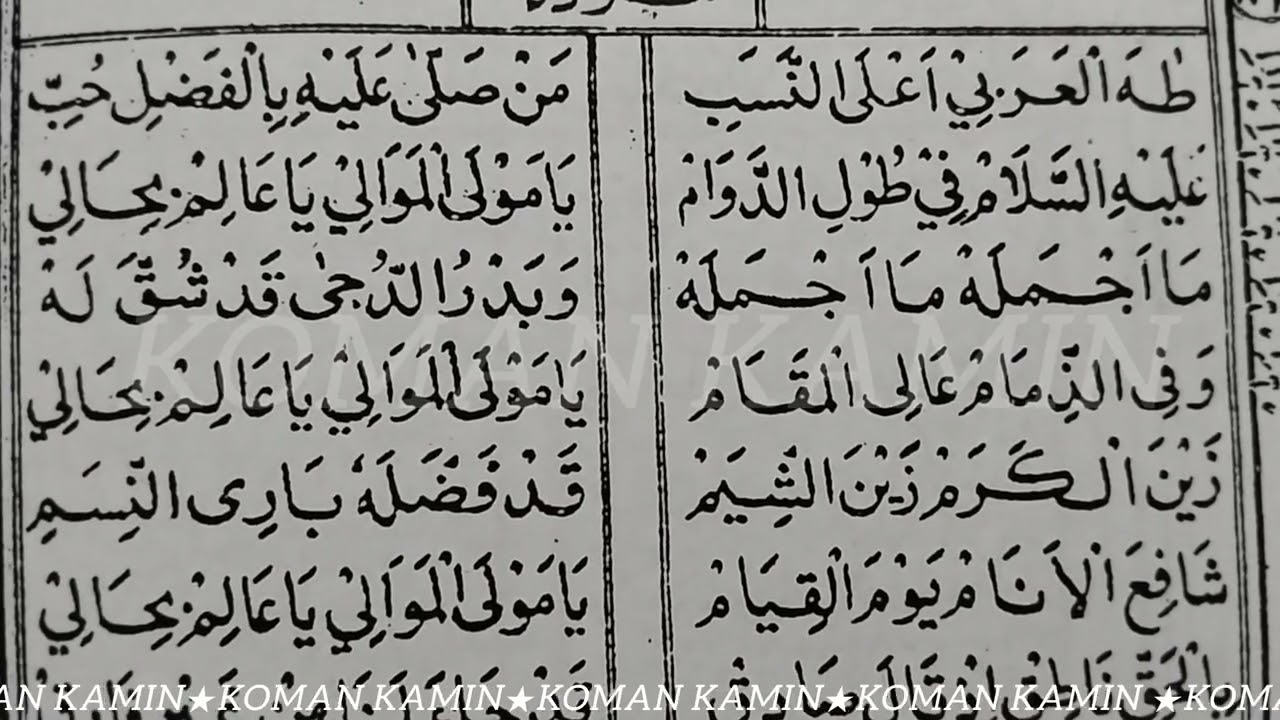 طٰهَ الْعَرَبِيْ اَعْلَى النَّسَبِ مَنْ صَلّٰى عَلَيْهِ بِالْفَضْلِ حُبِّ
عَلَيْهِ السَّلَامْ فِيْ طُوْلِ الدَّوَامْ يَا مَوْلَى الْمَوَالِيْ يَا عَالِمْ بِحَالِيْ
مَا اَجْمَلَهْ مَا اَجْمَلَهْ وَبَدْرُ الدُّجٰى قَدْ شُقَّ لَهْ
وَفِى الذِّمَامْ عَالِى الْمَقَامْ يَا مَوْلَى الْمَوَالِيْ يَا عَالِمْ بِحَالِيْ
زَيْنَ الْكَرَمْ زَيْنَ الشِّيَمْ قَدْ فَضَّلَهُ بَارِى النِّسَمِ
شَافِعَ الْاَنَامْ يَوْمَ الْقِيَامْ يَا مَوْلَى الْمَوَالِيْ يَا عَالِمْ بِحَالِيْ
KOMAN KAMIN
AN KAMIN★KOMAN KAMIN★KOMAN KAMIN★KOMAN KAMIN ★KOMA